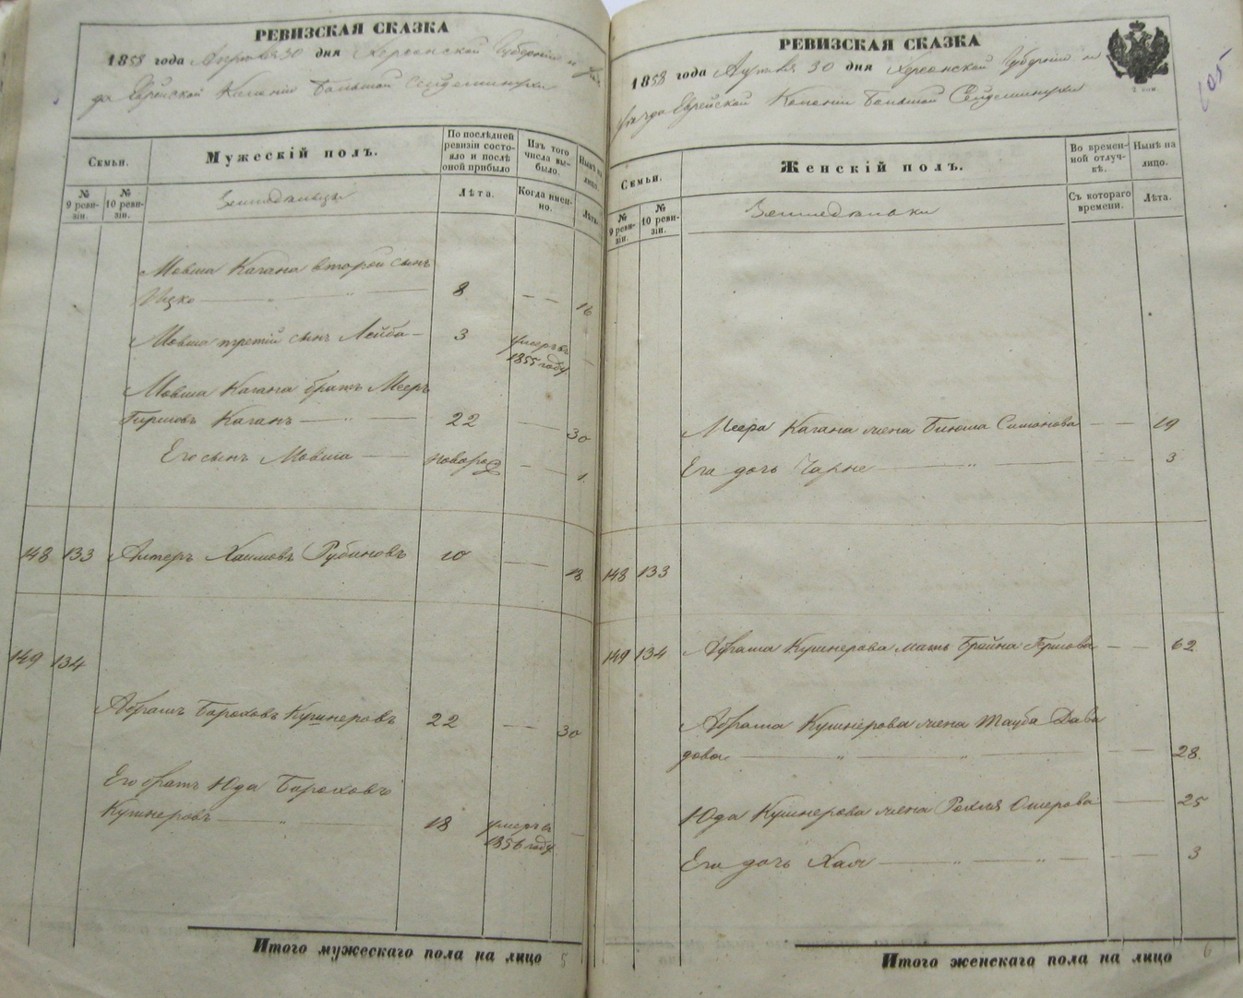 РЕВИЗСКАЯ СКАЗКА
1858 года Апреля 30 дня Херсонской Губернии и уѣз
да Еврейской Колоніи Большой Сейдеминухи
Семьи.
Мужескій полъ.
По послѣдней ревизіи состояло и послѣ оной прибыло
Изъ того числа выбыло.
Нынѣ на лицо.
№ 9 ревизіи.
№ 10 ревизіи.
Земледѣльцы
Лѣта.
Когда именно.
Лѣта.
Мовша Кагана второй сынъ
Ицко 8 16
Мовша третій сынъ Лейба 3 умеръ въ
1855 году
Мовша Кагана братъ Мееръ
Гиршовъ Каганъ 22 30
Его сынъ Мовша новорож 1
148 133 Алтеръ Хаимовъ Рубиновъ 10 18
149 134
Абрамъ Бороховъ Кушнеровъ 22 30
Его братъ Юда Бороховъ
Кушнеровъ 18 умеръ въ
1856 году
Итого мужескаго пола на лицо 5
РЕВИЗСКАЯ СКАЗКА
1858 года Апреля 30 дня Херсонской Губерніи и
уѣзда Еврейской Колоніи Большой Сейдеминухи
105
Семьи.
Женскій полъ.
Во временной отлучкѣ.
Нынѣ на лицо.
№ 9 ревизіи.
№ 10 ревизіи.
Земледѣльки
Съ котораго времени.
Лѣта.
Меера Кагана жена Симонова 19
Его дочь Чарне 3
148 133
149 134 Абрама Кушнерова мать Брайна Гершова 62
Абрама Кушнерова жена Тауба Дави
дова 28
Юда Кушнерова жена Рохля Ошерова 25
Его дочь Хая 3
Итого женскаго пола на лицо 6